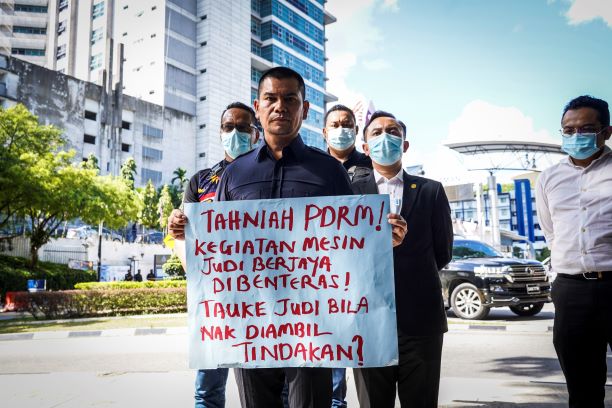 TAHNIAH PDRM!
KEGIATAN MESIN
JUDI BERJAYA
DIBENTERAS!
TAUKE JUDI BILA
NAK DIAMBIL
TINDAKAN?